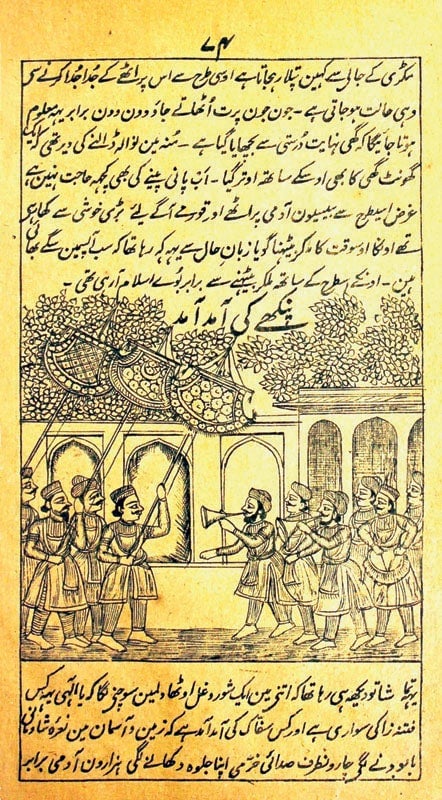 ۷۴
مکڑی کے جالی سے کہین پتلا رہجاتا ہے اوسی طرح سے اس پراٹھے کے جدا جدا کرنے سی
وہی حالت ہوجاتی ہے - جون جون پرت اُٹھاتے جاؤ دون دون برابر یہہ معلوم
ہوتا جائیگا کہ گھی نہایت درستی سے بچھایا گیا ہے - منہ مین نوالہ ڈالنے کی دیر تھی کہ ایک
گھونٹ گھی کا بھی اوسکے ساتھ اوتر گیا - اب پانی پینے کی بھی کچہہ حاجت نہین ہے
غرض اسیطرح سے بیسیون آدمی پراٹھے اور قورمے آگے لیئے بڑی خوشی سے کھا رہی
تھے اونکا اوسوقت کا ملکر بیٹھنا گویا زبان حال سے یہہ کہہ رہا تھا کہ سب آپسمین سگے بھائی
ہین - اونکے اسطرح کے ساتھ ملکر بیٹھنے سے برابر بوئے اسلام آرہی تھی -
پنکھے کی آمد آمد
یہہ تماشا تو دیکھہ ہی رہا تھا کہ اتنی مین ایک شور و غل اوٹھا دلمین سوچنی لگا کہ یا الٰہی یہہ کس
فتنہ زا کی سواری ہے اور کس سفاک کی آمد آمد ہے کہ زمین و آسمان مین نعرہ شادمانی
بلند ہونے لگی چارونطرف صدائی خرمی اپنا جلوہ دکھانے لگی ہزارون آدمی برابر